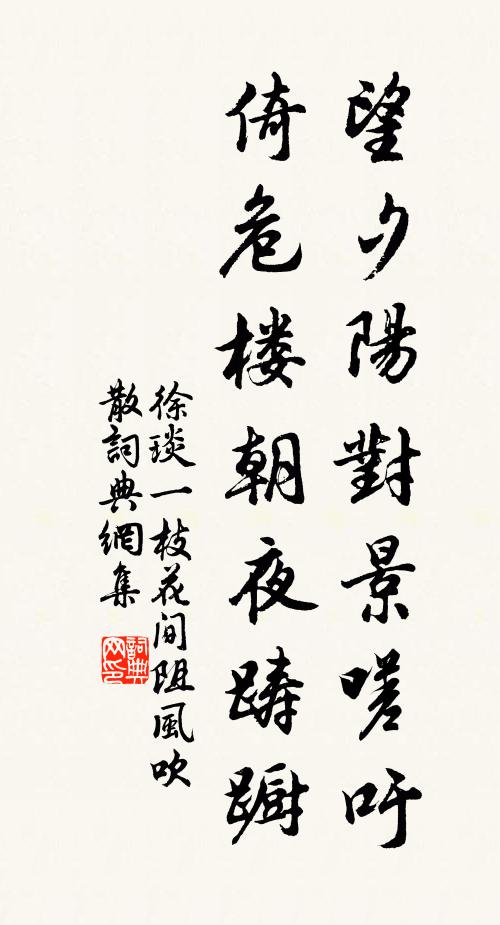 望夕陽對景嗟吁
倚危楼朝夜踌蹰
徐琰一枝花间阻風吹
散詞典網集
詞典網印